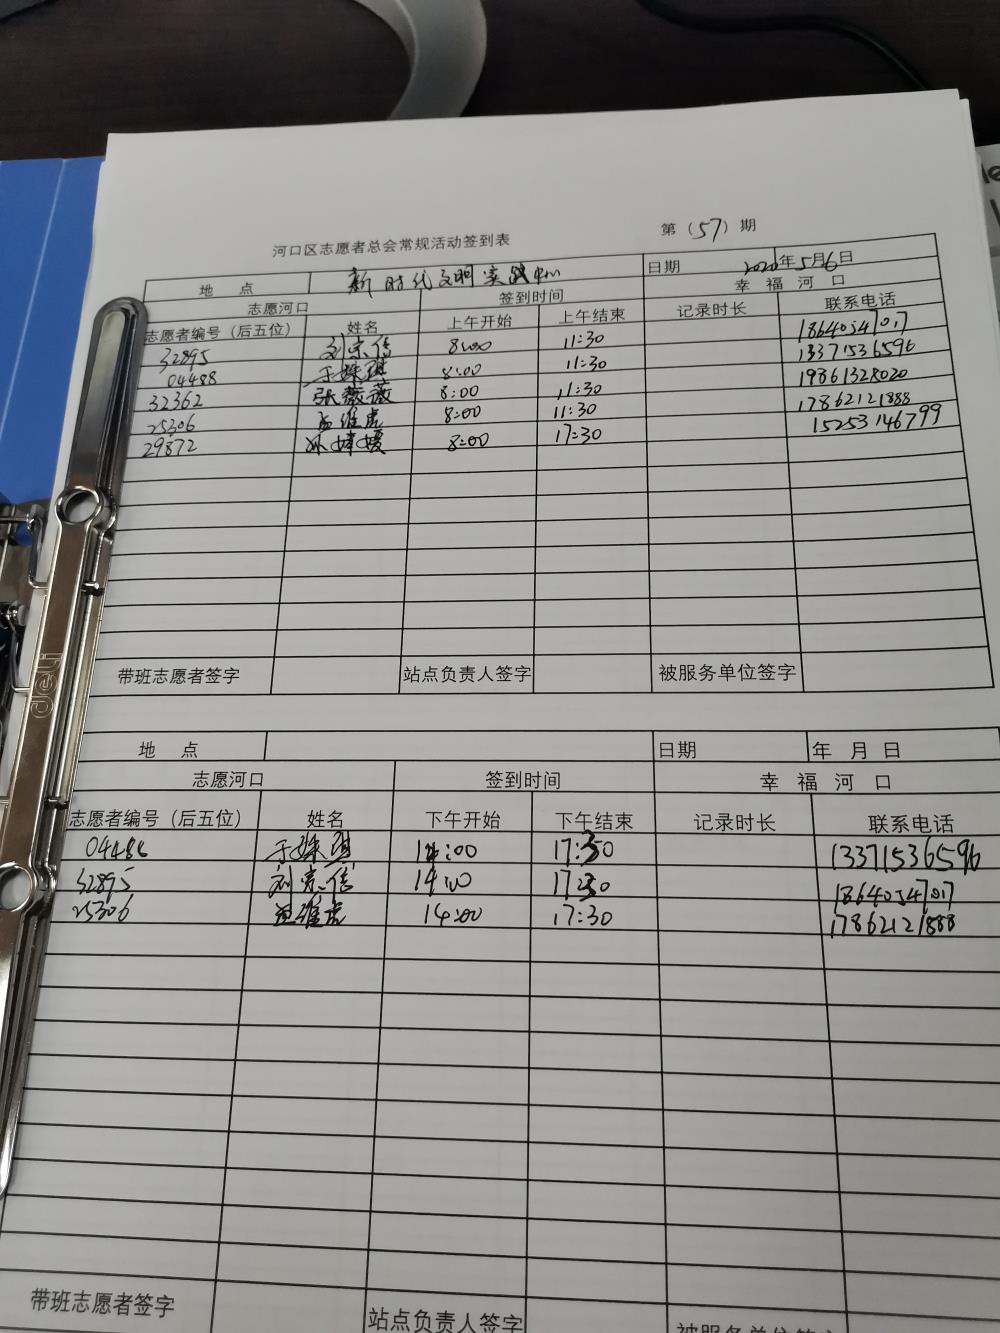 河口区志愿者总会常规活动签到表 第（57）期
地 点 新时代文明实践中心 日期 2020年5月6日
志愿河口 签到时间 幸 福 河 口
志愿者编号（后五位） 姓名 上午开始 上午结束 记录时长 联系电话
32895 刘宗信 8:00 11:30 18640547017
04488 于姝琪 8:00 11:30 13371536596
32362 张薇薇 8:00 11:30 19861328020
25306 孟维虎 8:00 11:30 17862121888
29872 孙婷媛 8:00 17:30 15253146799
带班志愿者签字 站点负责人签字 被服务单位签字
地 点 日期 年 月 日
志愿河口 签到时间 幸 福 河 口
志愿者编号（后五位） 姓名 下午开始 下午结束 记录时长 联系电话
04488 于姝琪 14:00 17:30 13371536596
32895 刘宗信 14:00 17:30 18640547017
25306 孟维虎 14:00 17:30 17862121888
带班志愿者签字 站点负责人签字
deli